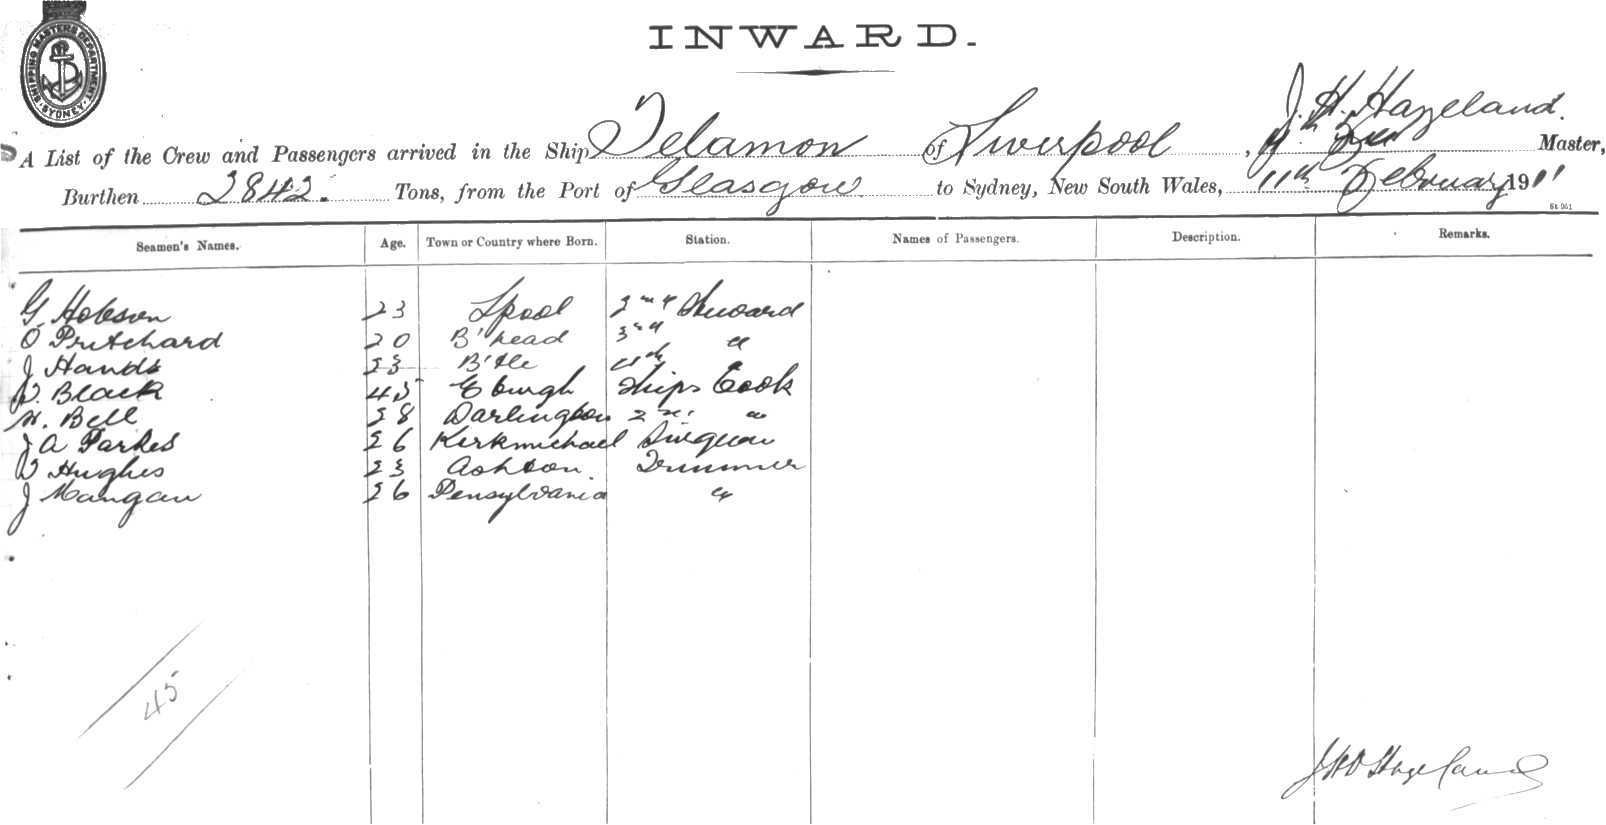 SHIPPING MASTERS DEPARTMENT SYDNEY
INWARD.
J. H. Hazeland.
A List of the Crew and Passengers arrived in the Ship Telamon of Liverpool, Master,
Burthen 2842. Tons, from the Port of Glasgow to Sydney, New South Wales, 11th February 1911
Seamen's Names. Age. Town or Country where Born. Station. Names of Passengers. Description. Remarks.
G Hobson 23 Lpool 2nd Steward
O Pritchard 20 B'head 3rd "
J Hands 23 B'tle 4th
D. Black 45 E'burgh Ships Cook
H. Bell 28 Darlington 2nd "
J A Parkes 26 Kirkmichael
D Hughes 23 Ashton Trimmer
J Mangan 26 Pensylvania "
45